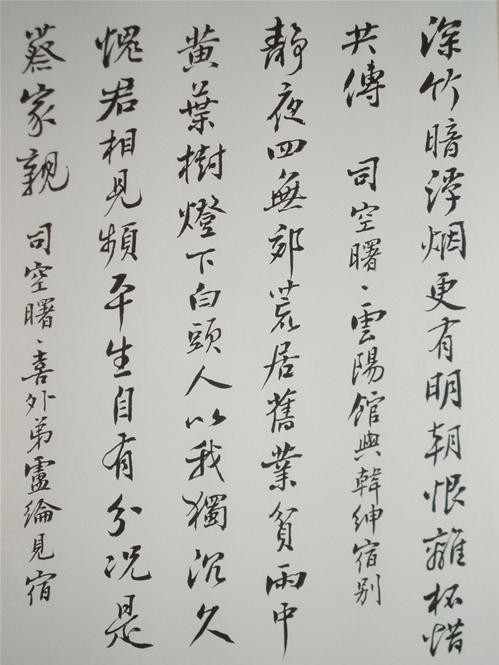 深竹暗浮烟更有明朝恨離杯惜
共傳 司空曙、雲陽館與韓紳宿别
静夜四無郊荒居舊業貧雨中
黄葉樹燈下白頭人以我獨沉久
愧君相見頻平生自有分况是
蔡家親 司空曙、喜外弟盧綸見宿